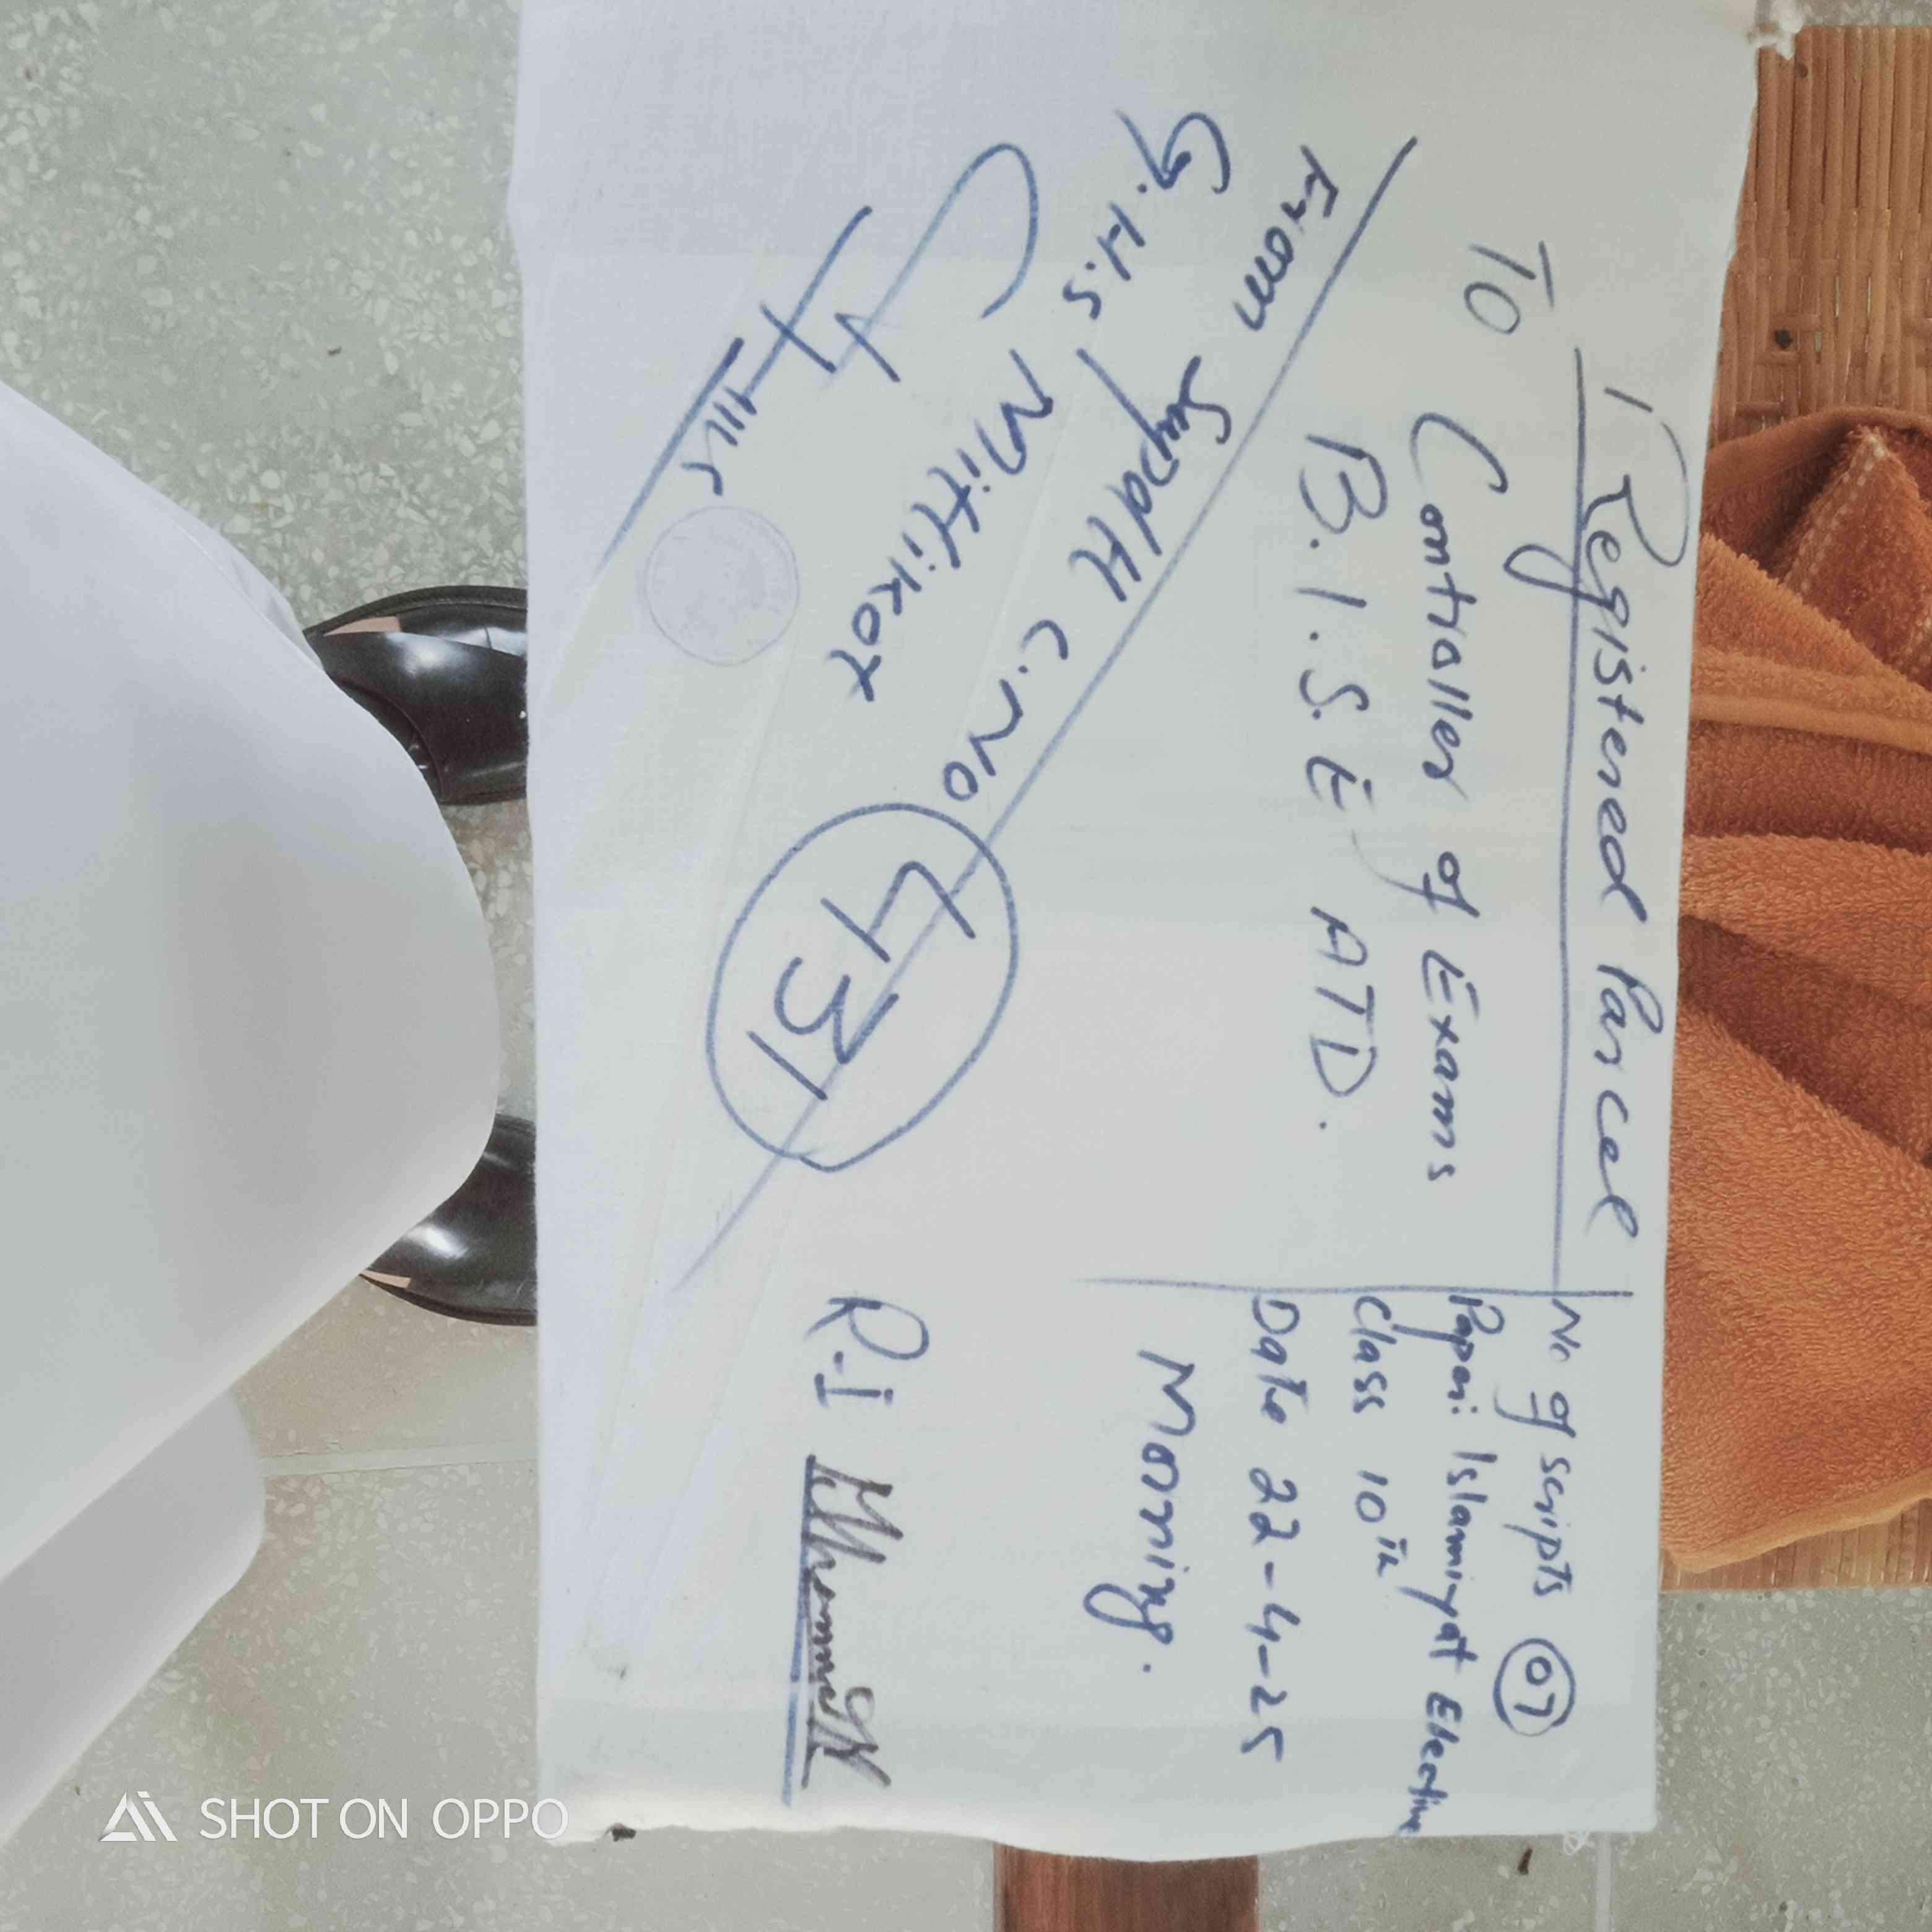 Registered Parcel
To
Controller of Exams
B.I.S.E ATD.
No of scripts 07
Paper: Islamiyat Elective
Class 10th
Date 22-4-25
Morning.
From Supdtt C.No 431
G.H.S Mithikot
R-I
SHOT ON OPPO